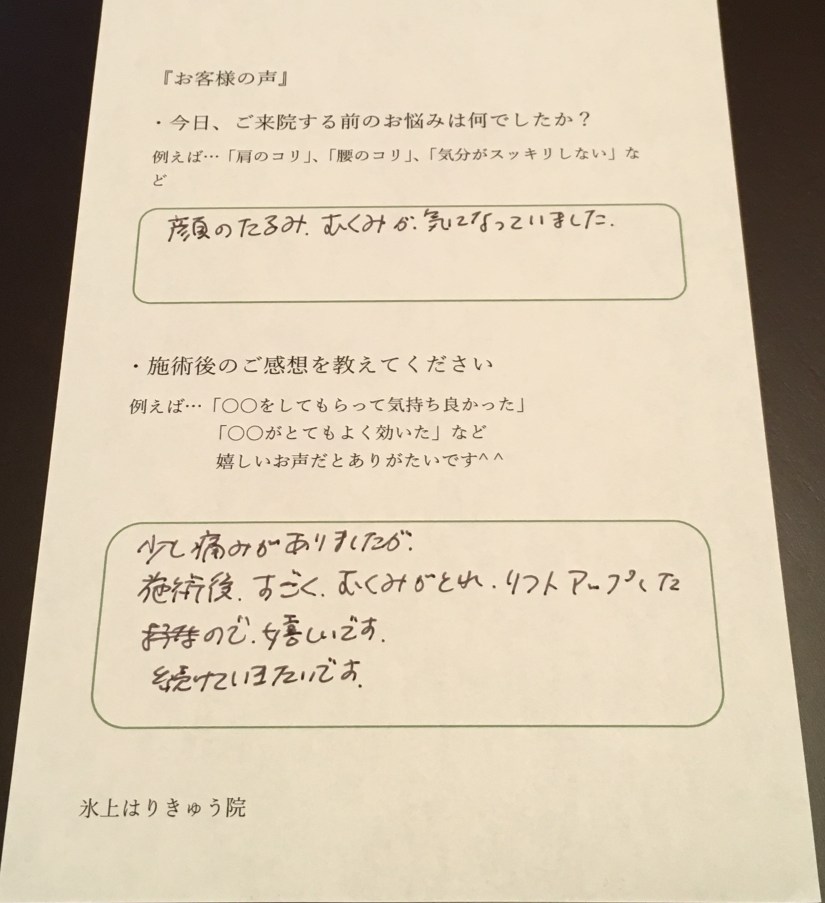 『お客様の声』
・今日、ご来院する前のお悩みは何でしたか？
例えば…「肩のコリ」、「腰のコリ」、「気分がスッキリしない」な
ど
顔のたるみ、むくみが、気になっていました。
・施術後のご感想を教えてください
例えば…「〇〇をしてもらって気持ち良かった」
「〇〇がとてもよく効いた」など
嬉しいお声だとありがたいです^ ^
少し痛みがありましたが、
施術後、すごく、むくみがとれ、リフトアップした
ので、嬉しいです。
続けていきたいです。
氷上はりきゅう院